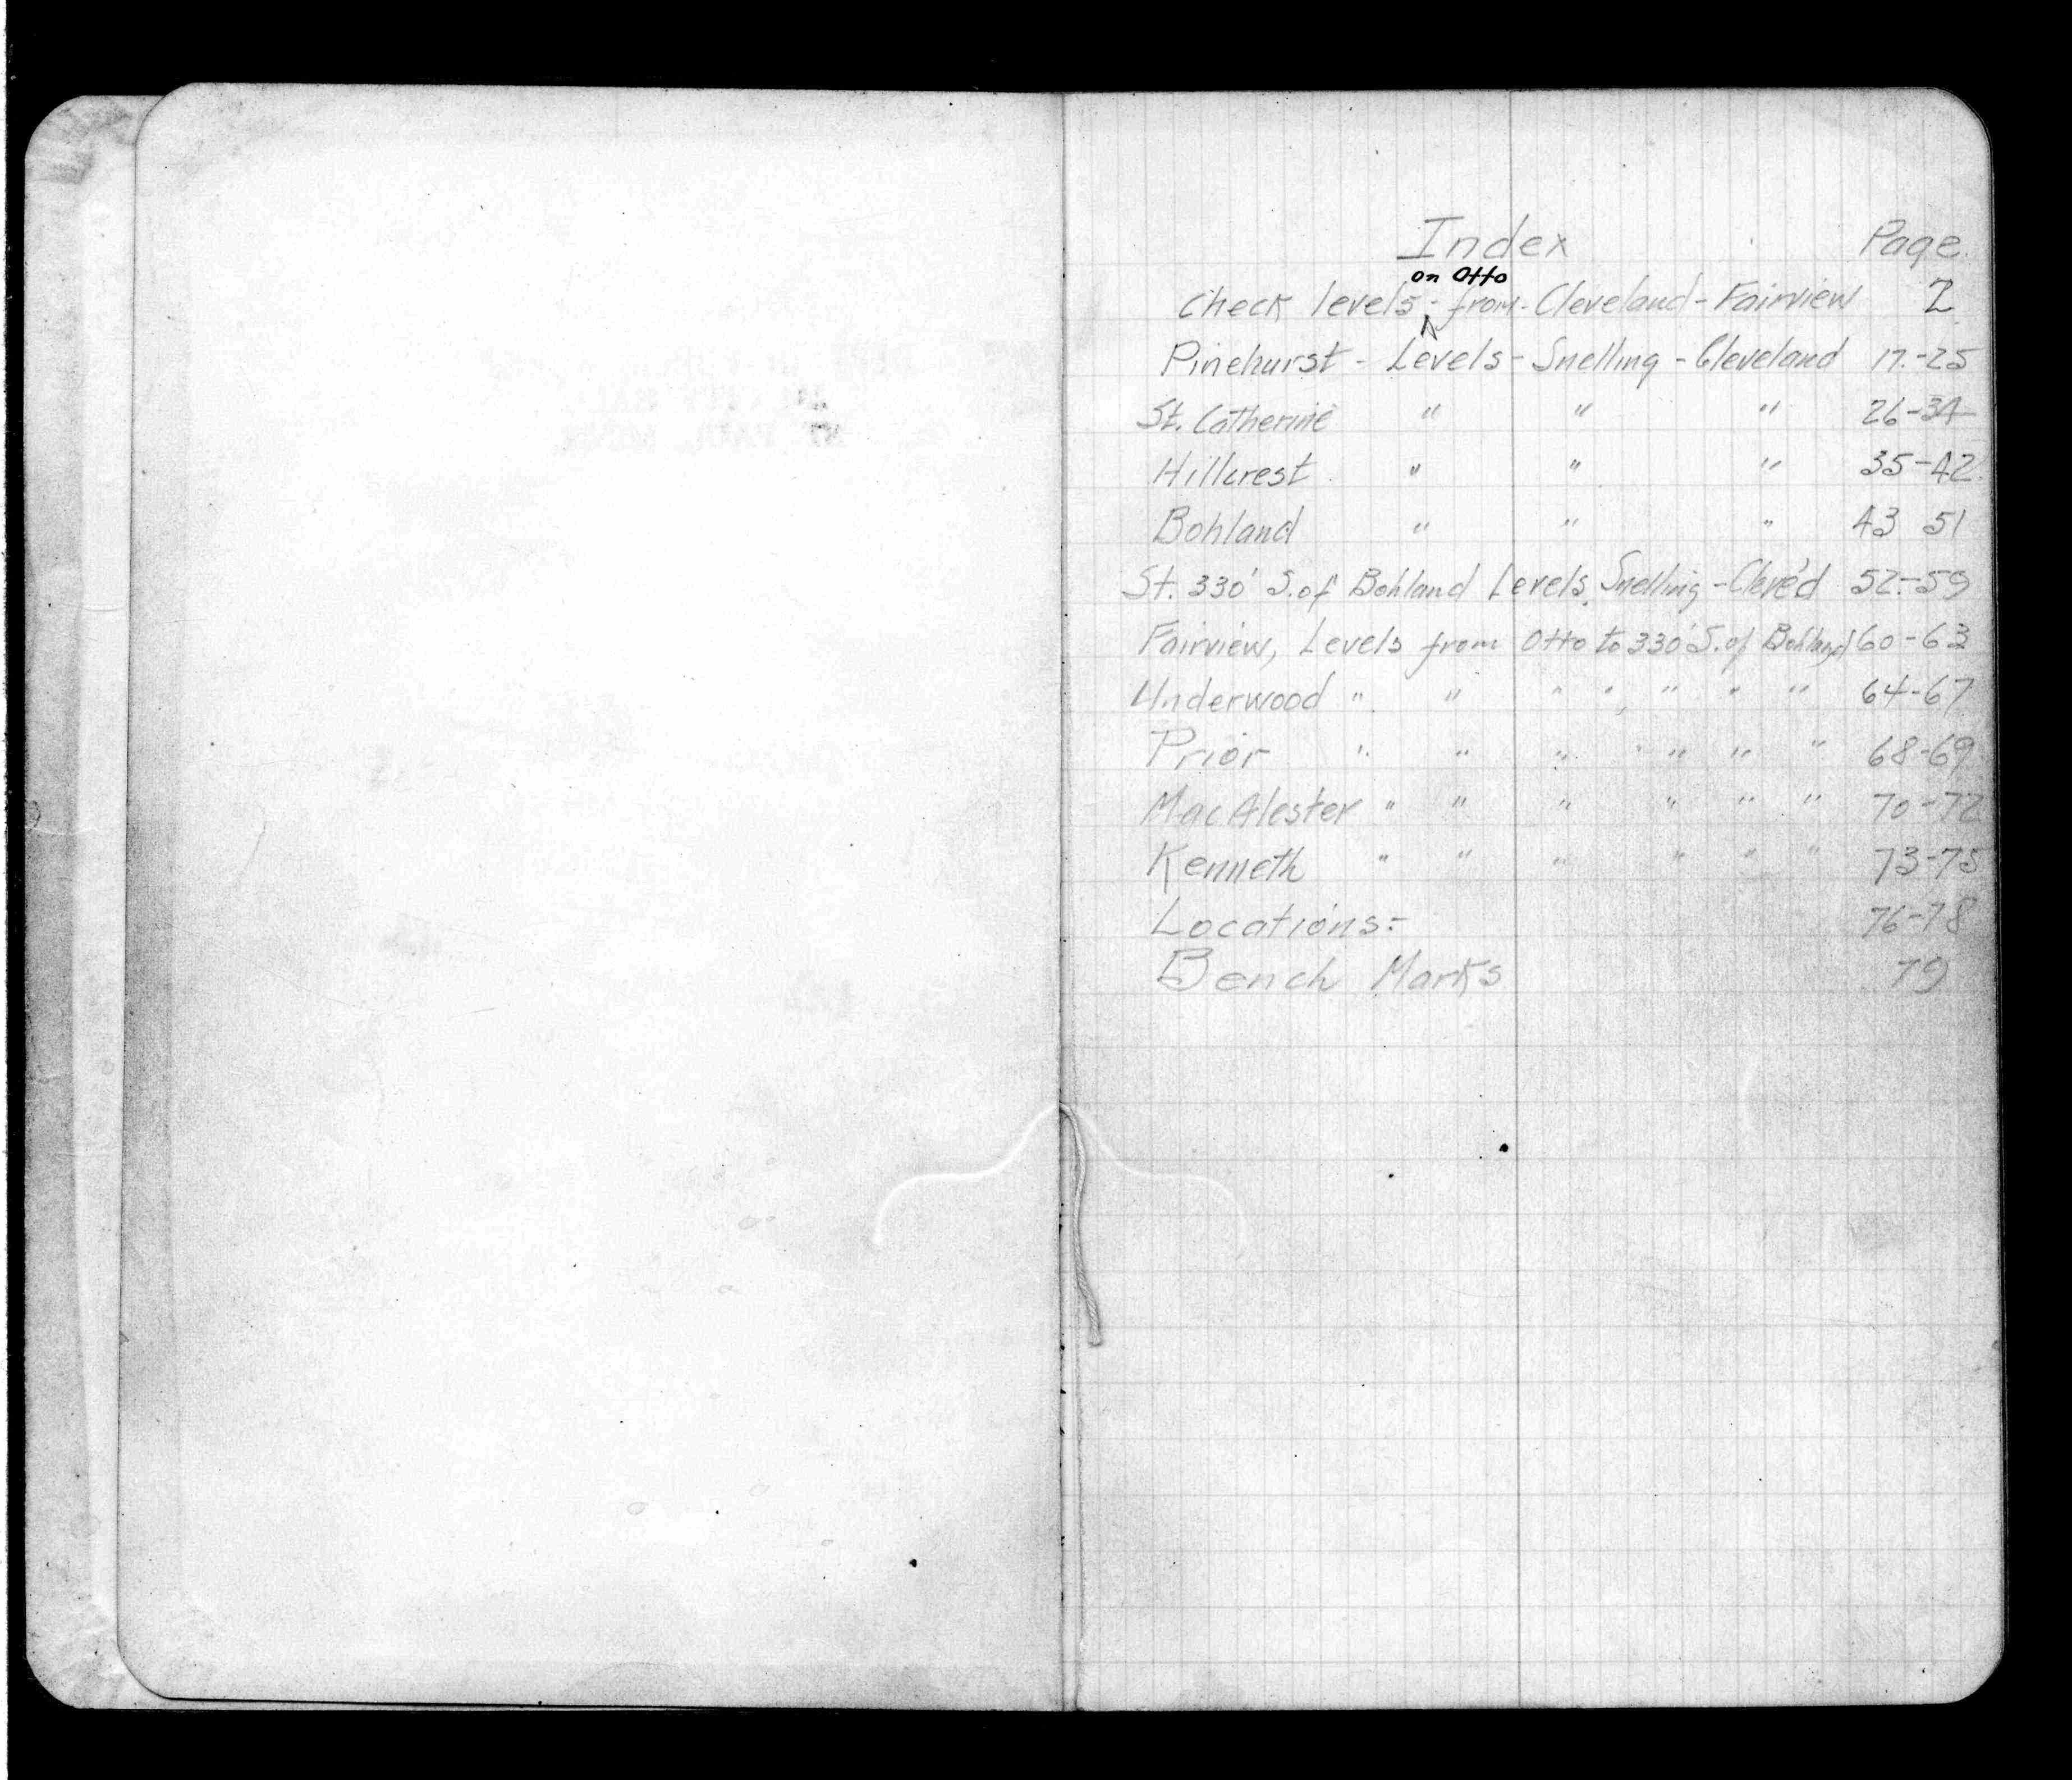 Index Page.
on Otto
Check levels - from - Cleveland - Fairview 2
Pinehurst - Levels - Snelling - Cleveland 17-25
St. Catherine " " " 26-34
Hillcrest " " " 35-42
Bohland " " " 43 51
St. 330' S. of Bohland Levels Snelling - Cleve'd 52-59
Fairview, Levels from Otto to 330' S. of Bohland 60-63
Underwood " " " " " " " 64-67
Prior " " " " " " " 68-69
MacAlester " " " " " " 70-72
Kenneth " " " " " " 73-75
Locations:- 76-78
Bench Marks 79